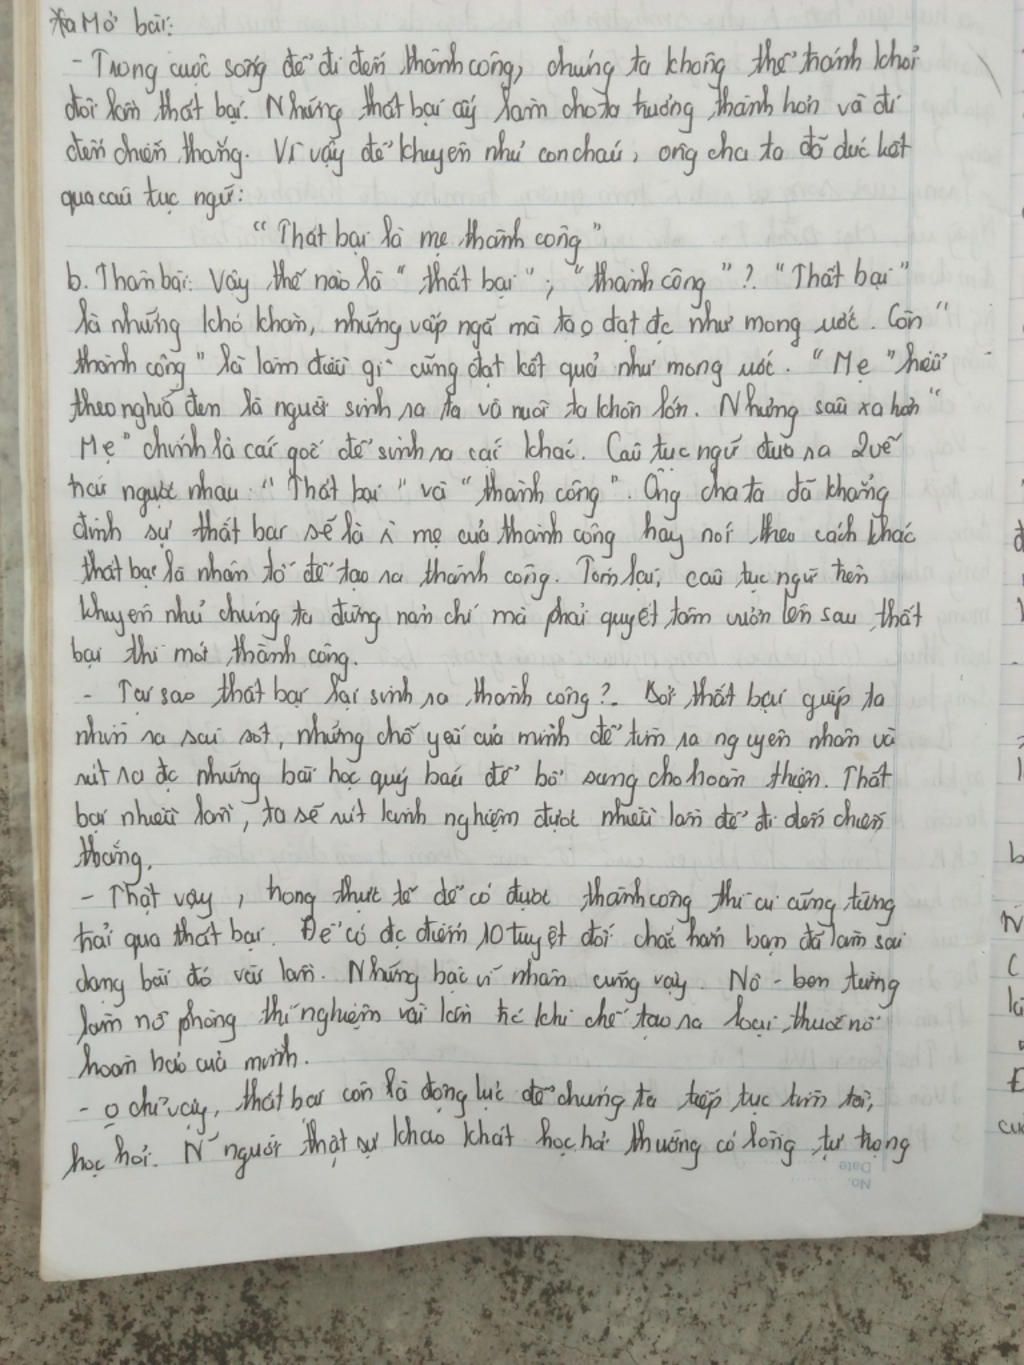 *a Mở bài:
- Trong cuộc sống để đi đến thành công, chúng ta không thể tránh khỏi
đôi lần thất bại. Những thất bại ấy làm cho ta trưởng thành hơn và đi
đến chiến thắng. Vì vậy để khuyên nhủ con cháu, ông cha ta đã đúc kết
qua câu tục ngữ:
"Thất bại là mẹ thành công"
b. Thân bài: Vậy thế nào là "thất bại"; "thành công"? "Thất bại"
là những khó khăn, những vấp ngã mà ta o đạt đc như mong ước. Còn "
thành công" là làm điều gì cũng đạt kết quả như mong ước. "Mẹ" hiểu
theo nghĩa đen là người sinh ra ta và nuôi ta khôn lớn. Nhưng sâu xa hơn "
Mẹ" chính là cái gốc để sinh ra cái khác. Câu tục ngữ đưa ra 2 vế
trái ngược nhau: "Thất bại" và "thành công". Ông cha ta đã khẳng
định sự thất bại sẽ là mẹ của thành công hay nói theo cách khác
thất bại là nhân tố để tạo ra thành công. Tóm lại, câu tục ngữ trên
khuyên nhủ chúng ta đừng nản chí mà phải quyết tâm vươn lên sau thất
bại thì mới thành công.
- Tại sao thất bại lại sinh ra thành công?. Bởi thất bại giúp ta
nhìn ra sai sót, những chỗ yếu của mình để tìm ra nguyên nhân và
rút ra đc những bài học quý báu để bổ sung cho hoàn thiện. Thất
bại nhiều lần, ta sẽ rút kinh nghiệm được nhiều lần để đi đến chiến
thắng.
- Thật vậy, trong thực tế để có được thành công thì ai cũng từng
trải qua thất bại. Để có đc điểm 10 tuyệt đối chắc hẳn bạn đã làm sai
dạng bài đó vài lần. Những bậc vĩ nhân cũng vậy. Nô-ben từng
làm nổ phòng thí nghiệm vài lần trc khi chế tạo ra loại thuốc nổ
hoàn hảo của mình.
- o chỉ vậy, thất bại còn là động lực để chúng ta tiếp tục tìm tòi,
học hỏi. N~ người thật sự khao khát học hỏi thường có lòng tự trọng
No.
Date